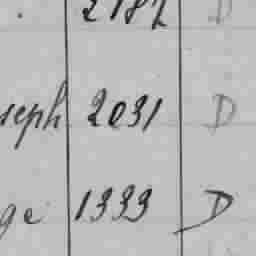 2187 D
seph 2031 D
ge 1333 D